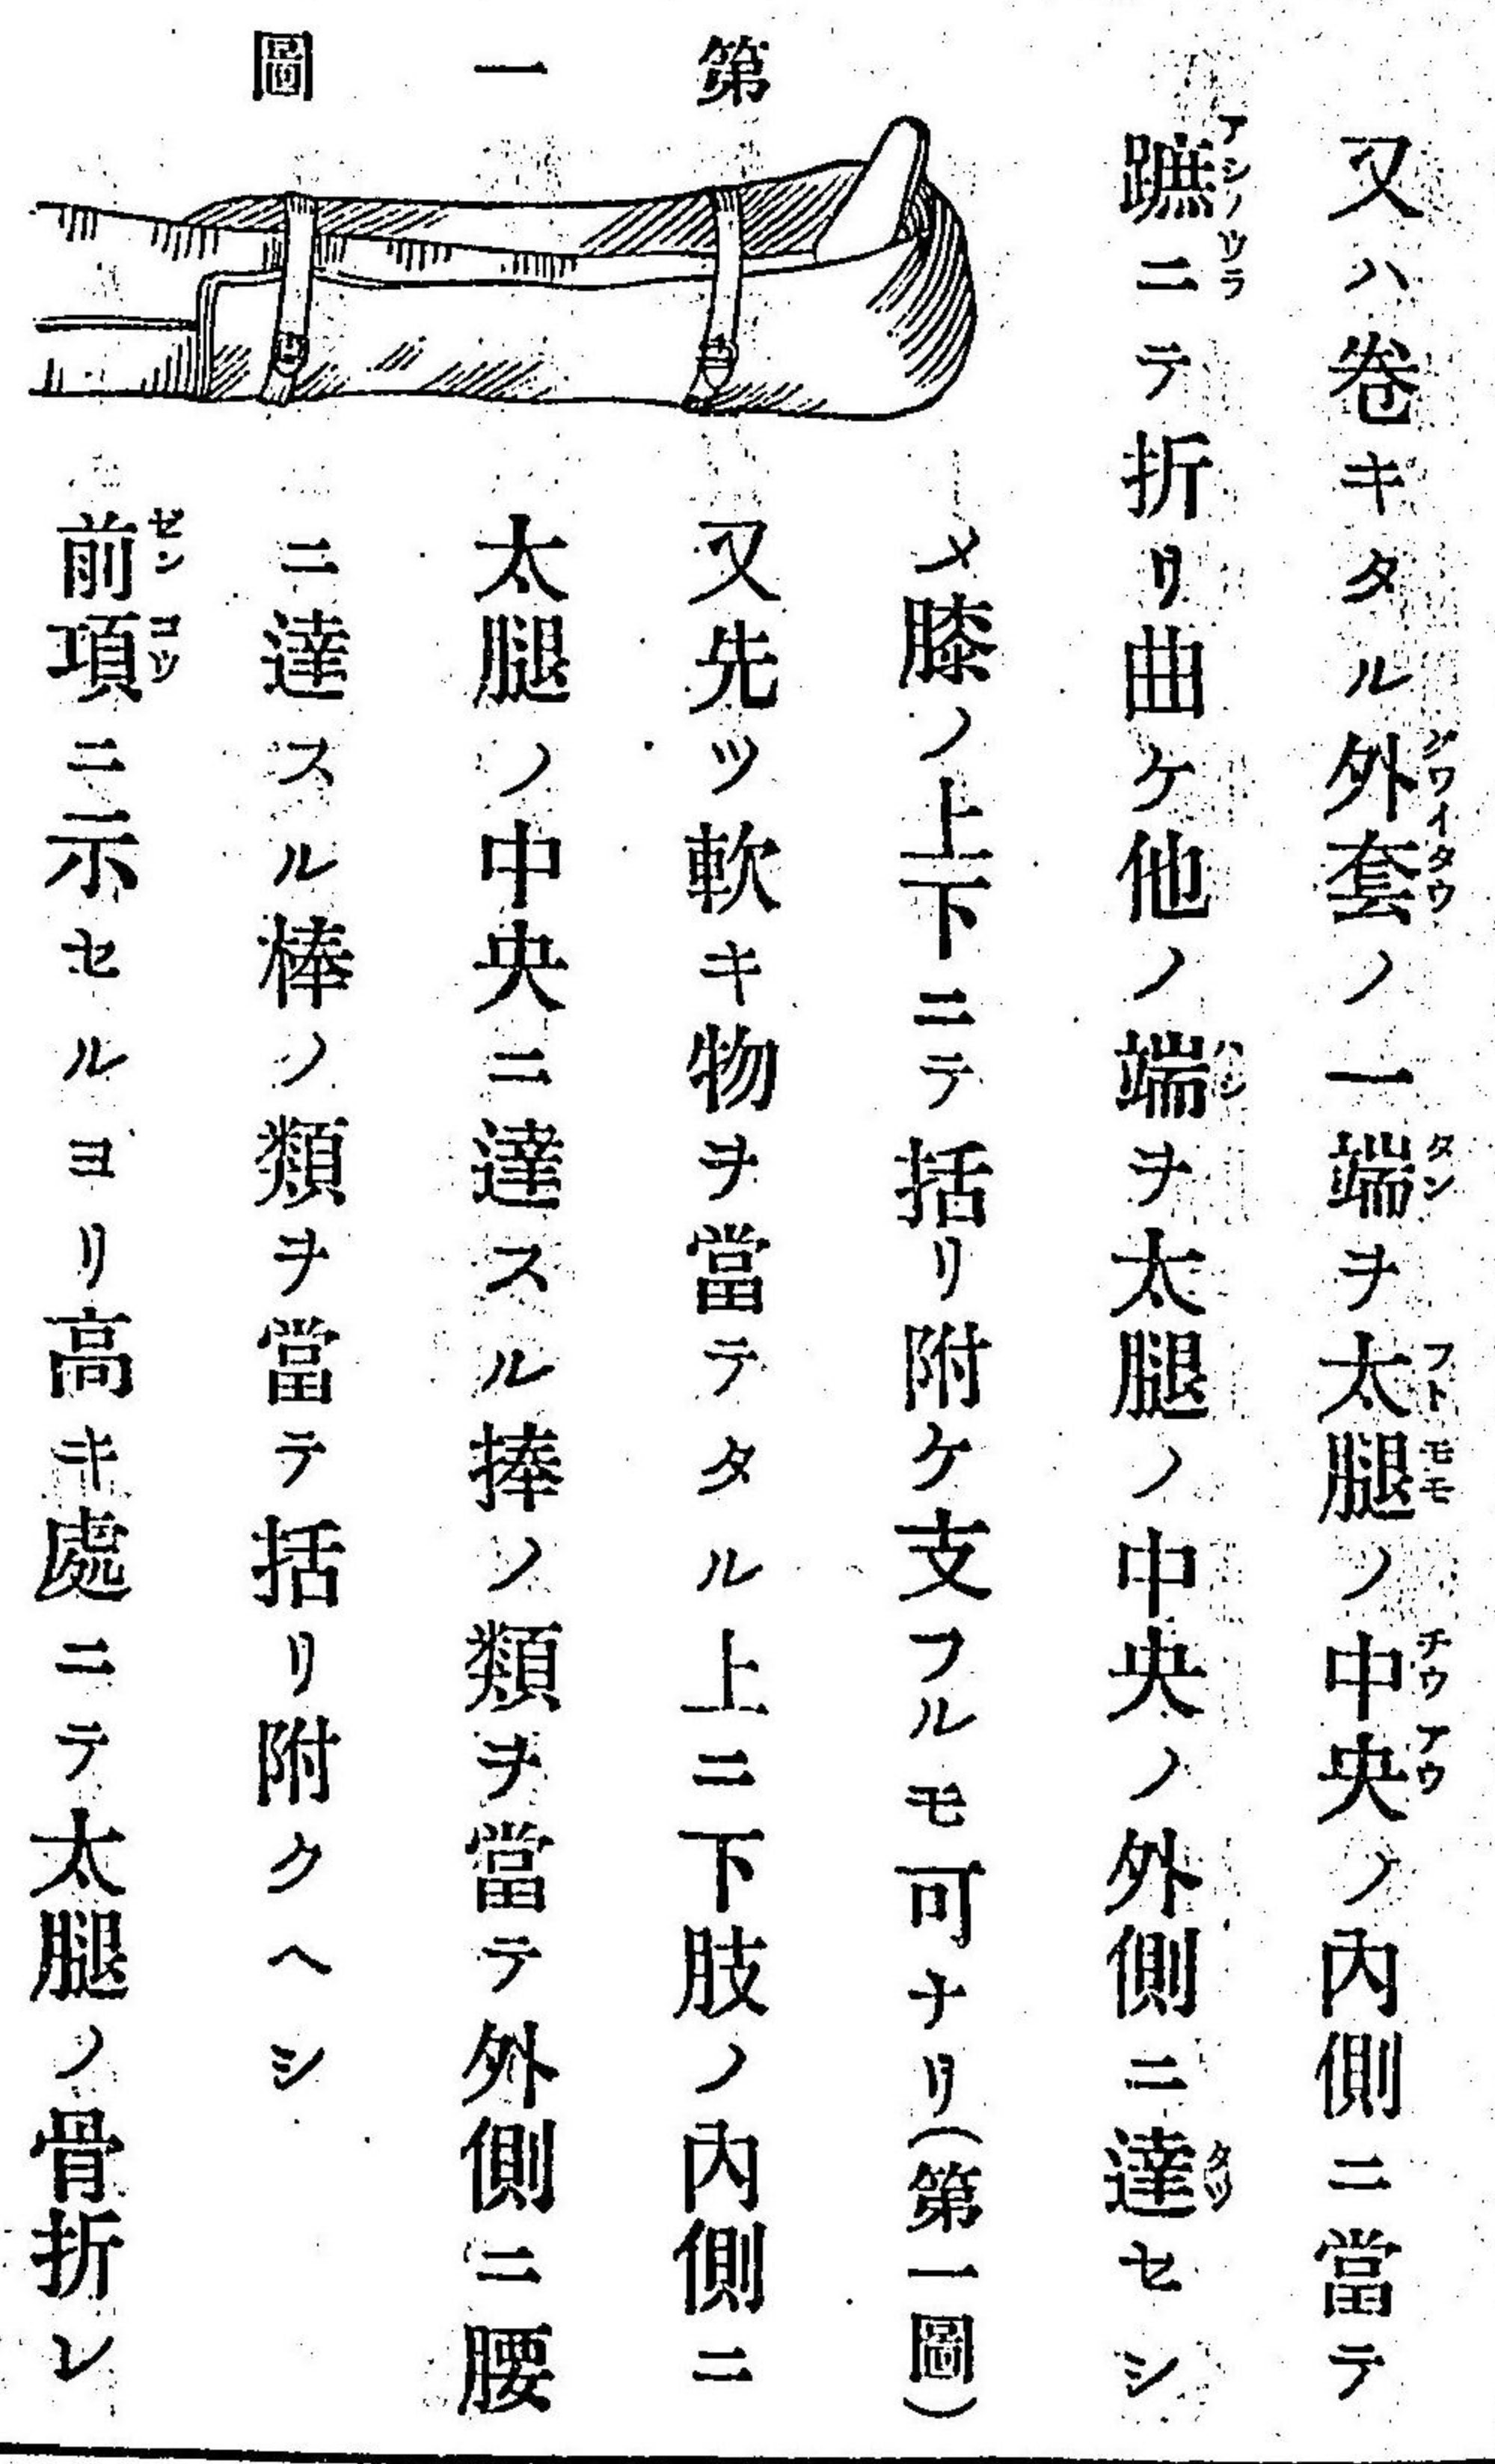 又ハ卷キタル外套ノ一端ヲ太腿ノ中央ノ內側ニ當テ
蹠ニテ折リ曲ケ他ノ端ヲ太腿ノ中央ノ外側ニ達セシ
メ膝ノ上下ニテ括リ附ケ支フルモ可ナリ(第一圖)
又先ツ軟キ物ヲ當テタル上ニ下肢ノ內側ニ
太腿ノ中央ニ達スル捧ノ類ヲ當テ外側ニ腰
ニ達スル棒ノ類ヲ當テ括リ附クヘシ
前項ニ示セルヨリ高キ處ニテ太腿ノ骨折レ
第一圖